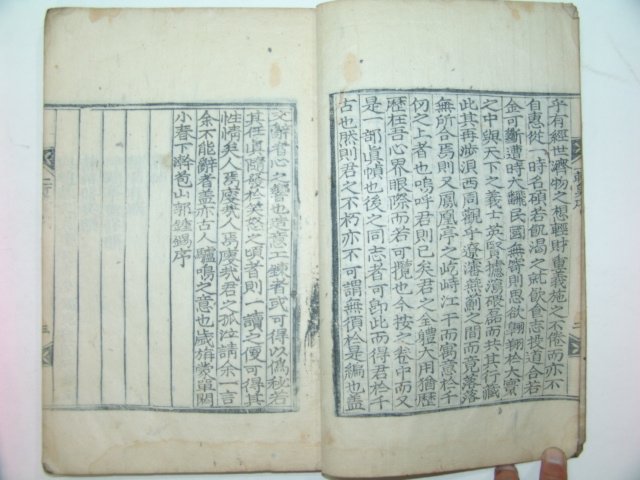 乎有經世濟物之想輕財重義施之不倦而亦不
自惠從一時名碩若飢渴之就飮食志投道合若
金可斷遭時大難民國無寄則思欲翺翔於大寰
之中與天下之義士英賢據濱磯磊而共其行藏
此其再游滇西同觀乎遼瀋燕薊之間而竟落落
無所合焉則又鳳凰亭之屹峙江干而寓意於千
仞之上者也嗚呼君則已矣君之全體大用猶歷
歷在吾心界眼際而若可攬也今按之卷中而又
是一部眞幀也後之同志者可卽此而得君於千
古也然則君之不朽亦不可謂無待於是編也盖
文辭者心之響也造意工鍊者或可得以僞秋若
其任眞隨發於矣急之頃者則一讀之便可得其
性情矣人焉廋哉人焉廋哉君之孤泣請余一言
余不能辭者盖亦古人驢鳴之意也歲旃蒙單閼
小春下澣苞山郭鍾錫序